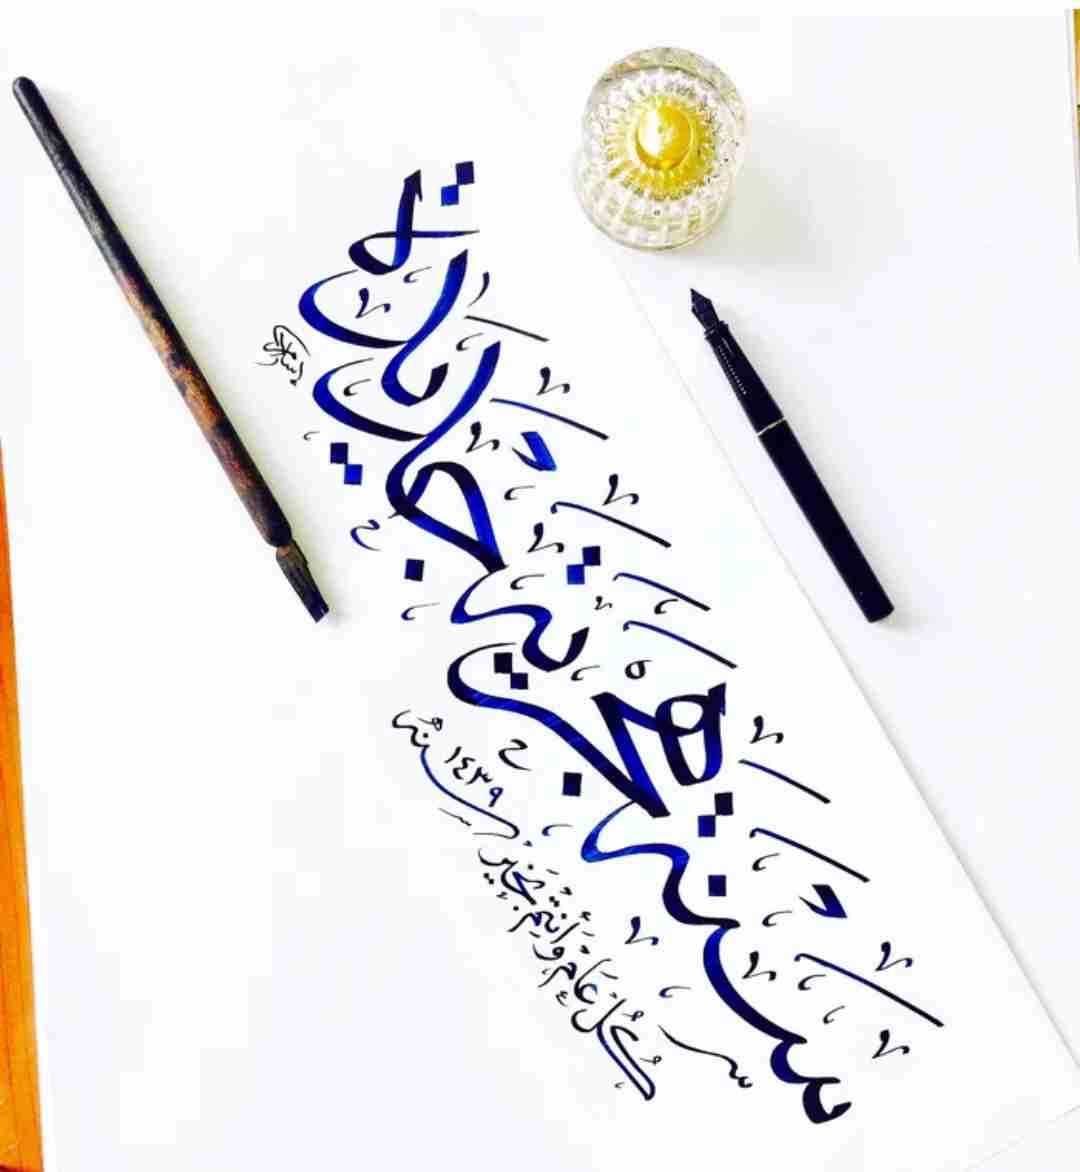 سنة هجرية جديدة
كل عام وأنتم بخير
سنة ١٤٣٩